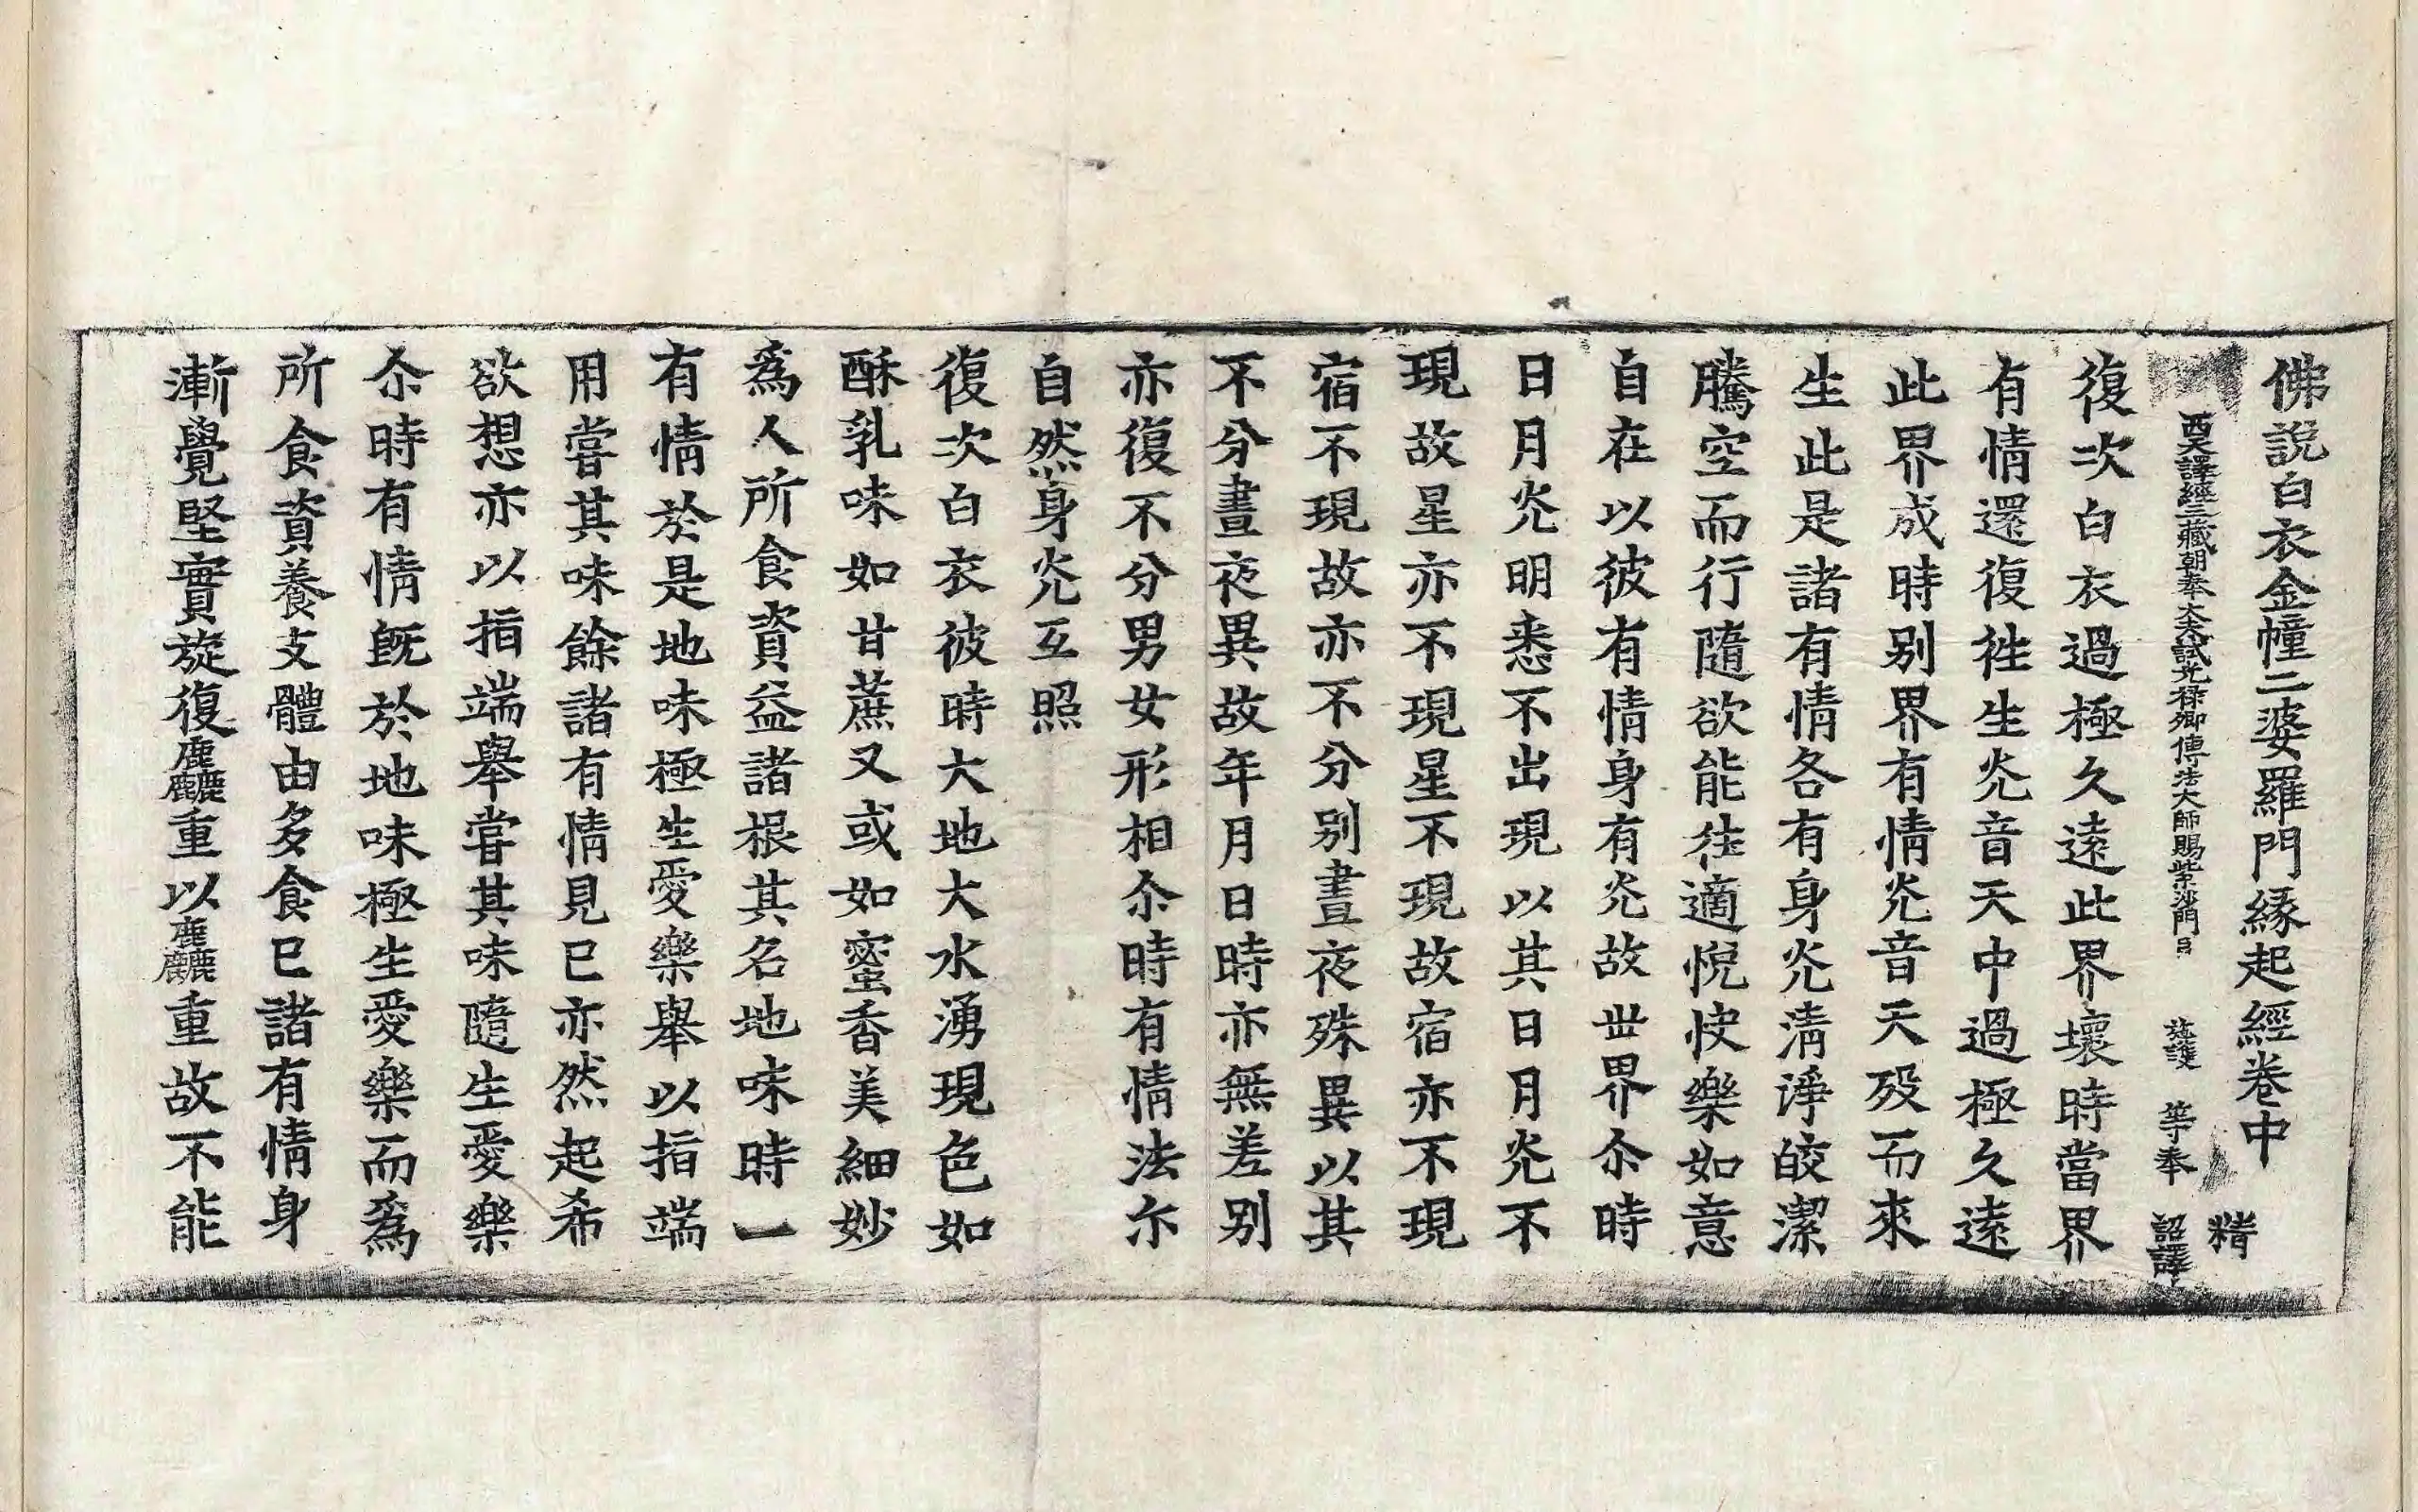 佛說白衣金幢二婆羅門緣起經卷中
精
西天譯經三藏朝奉大夫試光祿卿傳法大師賜紫沙門臣 施護 等奉 詔譯
復次白衣過極久遠此界壞時當界
有情還復徃生灮音天中過極久遠
此界成時別界有情灮音天歿而來
生此是諸有情各有身灮淸淨皎潔
騰空而行隨欲能徃適悅快樂如意
自在以彼有情身有灮故世界尒時
日月灮明悉不出現以其日月灮不
現故星亦不現星不現故宿亦不現
宿不現故亦不分別晝夜殊異以其
不分晝夜異故年月日時亦無差別
亦復不分男女形相尒時有情法尒
自然身灮互照
復次白衣彼時大地大水湧現色如
酥乳味如甘蔗又或如蜜香美細妙
爲人所食資益諸根其名地味時一
有情於是地味極生愛樂舉以指端
用嘗其味餘諸有情見已亦然起希
欲想亦以指端舉嘗其味隨生愛樂
尒時有情旣於地味極生愛樂而爲
所食資養支體由多食已諸有情身
漸覺堅實旋復麤重以麤重故不能